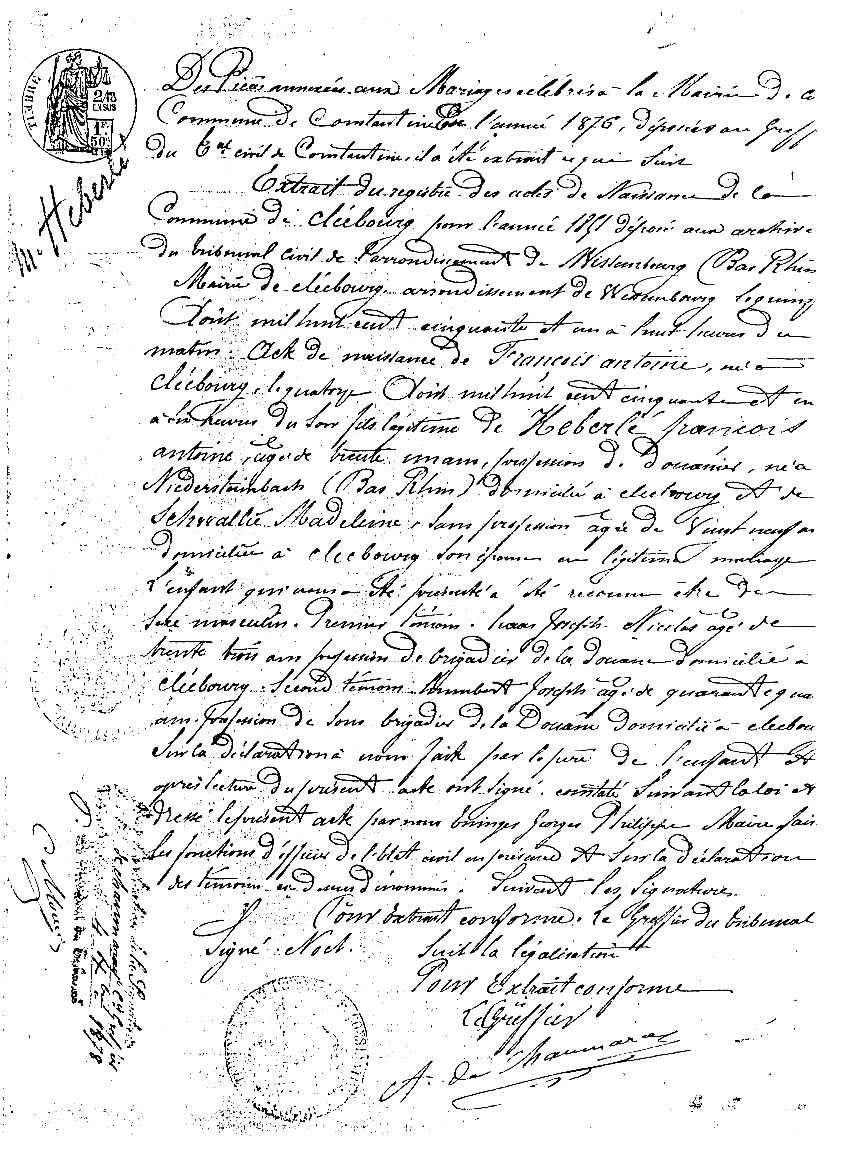 TIMBRE
2/10
EN SUS
1F
50c
M. Heberlé
Des Pièces annexées aux Mariages célébrés à la Mairie de ce
Commune de Constantine l'année 1876, déposées au Greff
du Cal civil de Constantine, il a été extrait ce qui suit
Extrait du registre des actes de Naissance de la
Commune de Cléebourg pour l'année 1851 déposé aux archive
du tribunal civil de l'arrondissement de Wissembourg (Bas Rhin
Mairie de Cléebourg arrondissement de Wissembourg le quinz
Août mil huit cent cinquante et un à huit heures du
matin. Acte de naissance de François antoine, né à
Cléebourg, le quatorze Août mil huit cent cinquante et un
à six heures du soir fils légitime de Heberlé françois
antoine, âgé de trente un ans, profession de Douanier, né à
Niedersteinbach (Bas Rhin) domicilié à Cleebourg et de
Schvallie Madeleine, sans profession âgée de Vingt neuf an
domiciliée à Cleebourg son épouse en légitime mariage
L'enfant qui nous a été présenté a été reconnu être du
sexe masculin. Premier témoin. haas Joseph Nicolas âgé de
trente trois ans profession de brigadier de la douane domicilié à
Cléebourg. Second témoin Humbert Joseph âgé de quarante qua
ans profession de sous brigadier de la Douane domicilié à Cleebou
Sur la déclaration à nous faite par le père de l'enfant Et
après lecture du présent acte ont signé. constaté suivant la loi et
dressé le présent acte par nous Georges Philippe Maire fais
les fonctions d'officier de l'état civil en présence et sur la déclaration
des témoins ci dessus dénommés. Suivent les Signatures.
Pour Extrait conforme. Le Greffier du tribunal
Signé: Noel. Suit la légalisation
Pour Extrait conforme
Le Greffier
A. de Chaumaray
1878